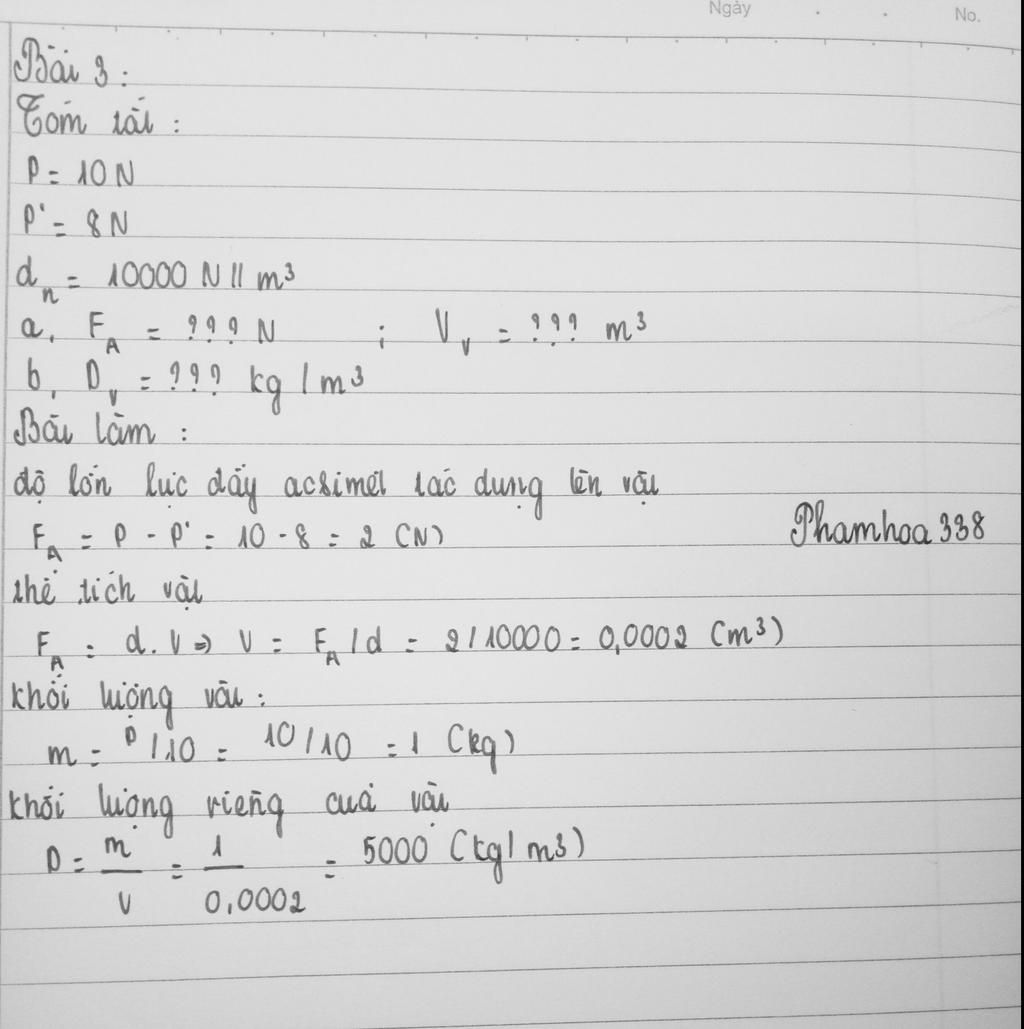 Ngày . . No.
Bài 3 :
Tóm tắt :
P = 10 N
P' = 8 N
dₙ = 10000 N // m³
a, F_A = ??? N ; V_v = ??? m³
b, D_v = ??? kg / m³
Bài làm :
độ lớn lực đẩy acsimet tác dụng lên vật
F_A = P - P' = 10 - 8 = 2 (N)
Phamhoa 338
thể tích vật
F_A = d . V => V = F_A / d = 2 / 10000 = 0,0002 (m³)
khối lượng vật :
m = P / 10 = 10 / 10 = 1 (kg)
khối lượng riêng của vật
D = m / V = 1 / 0,0002 = 5000 (kg / m³)